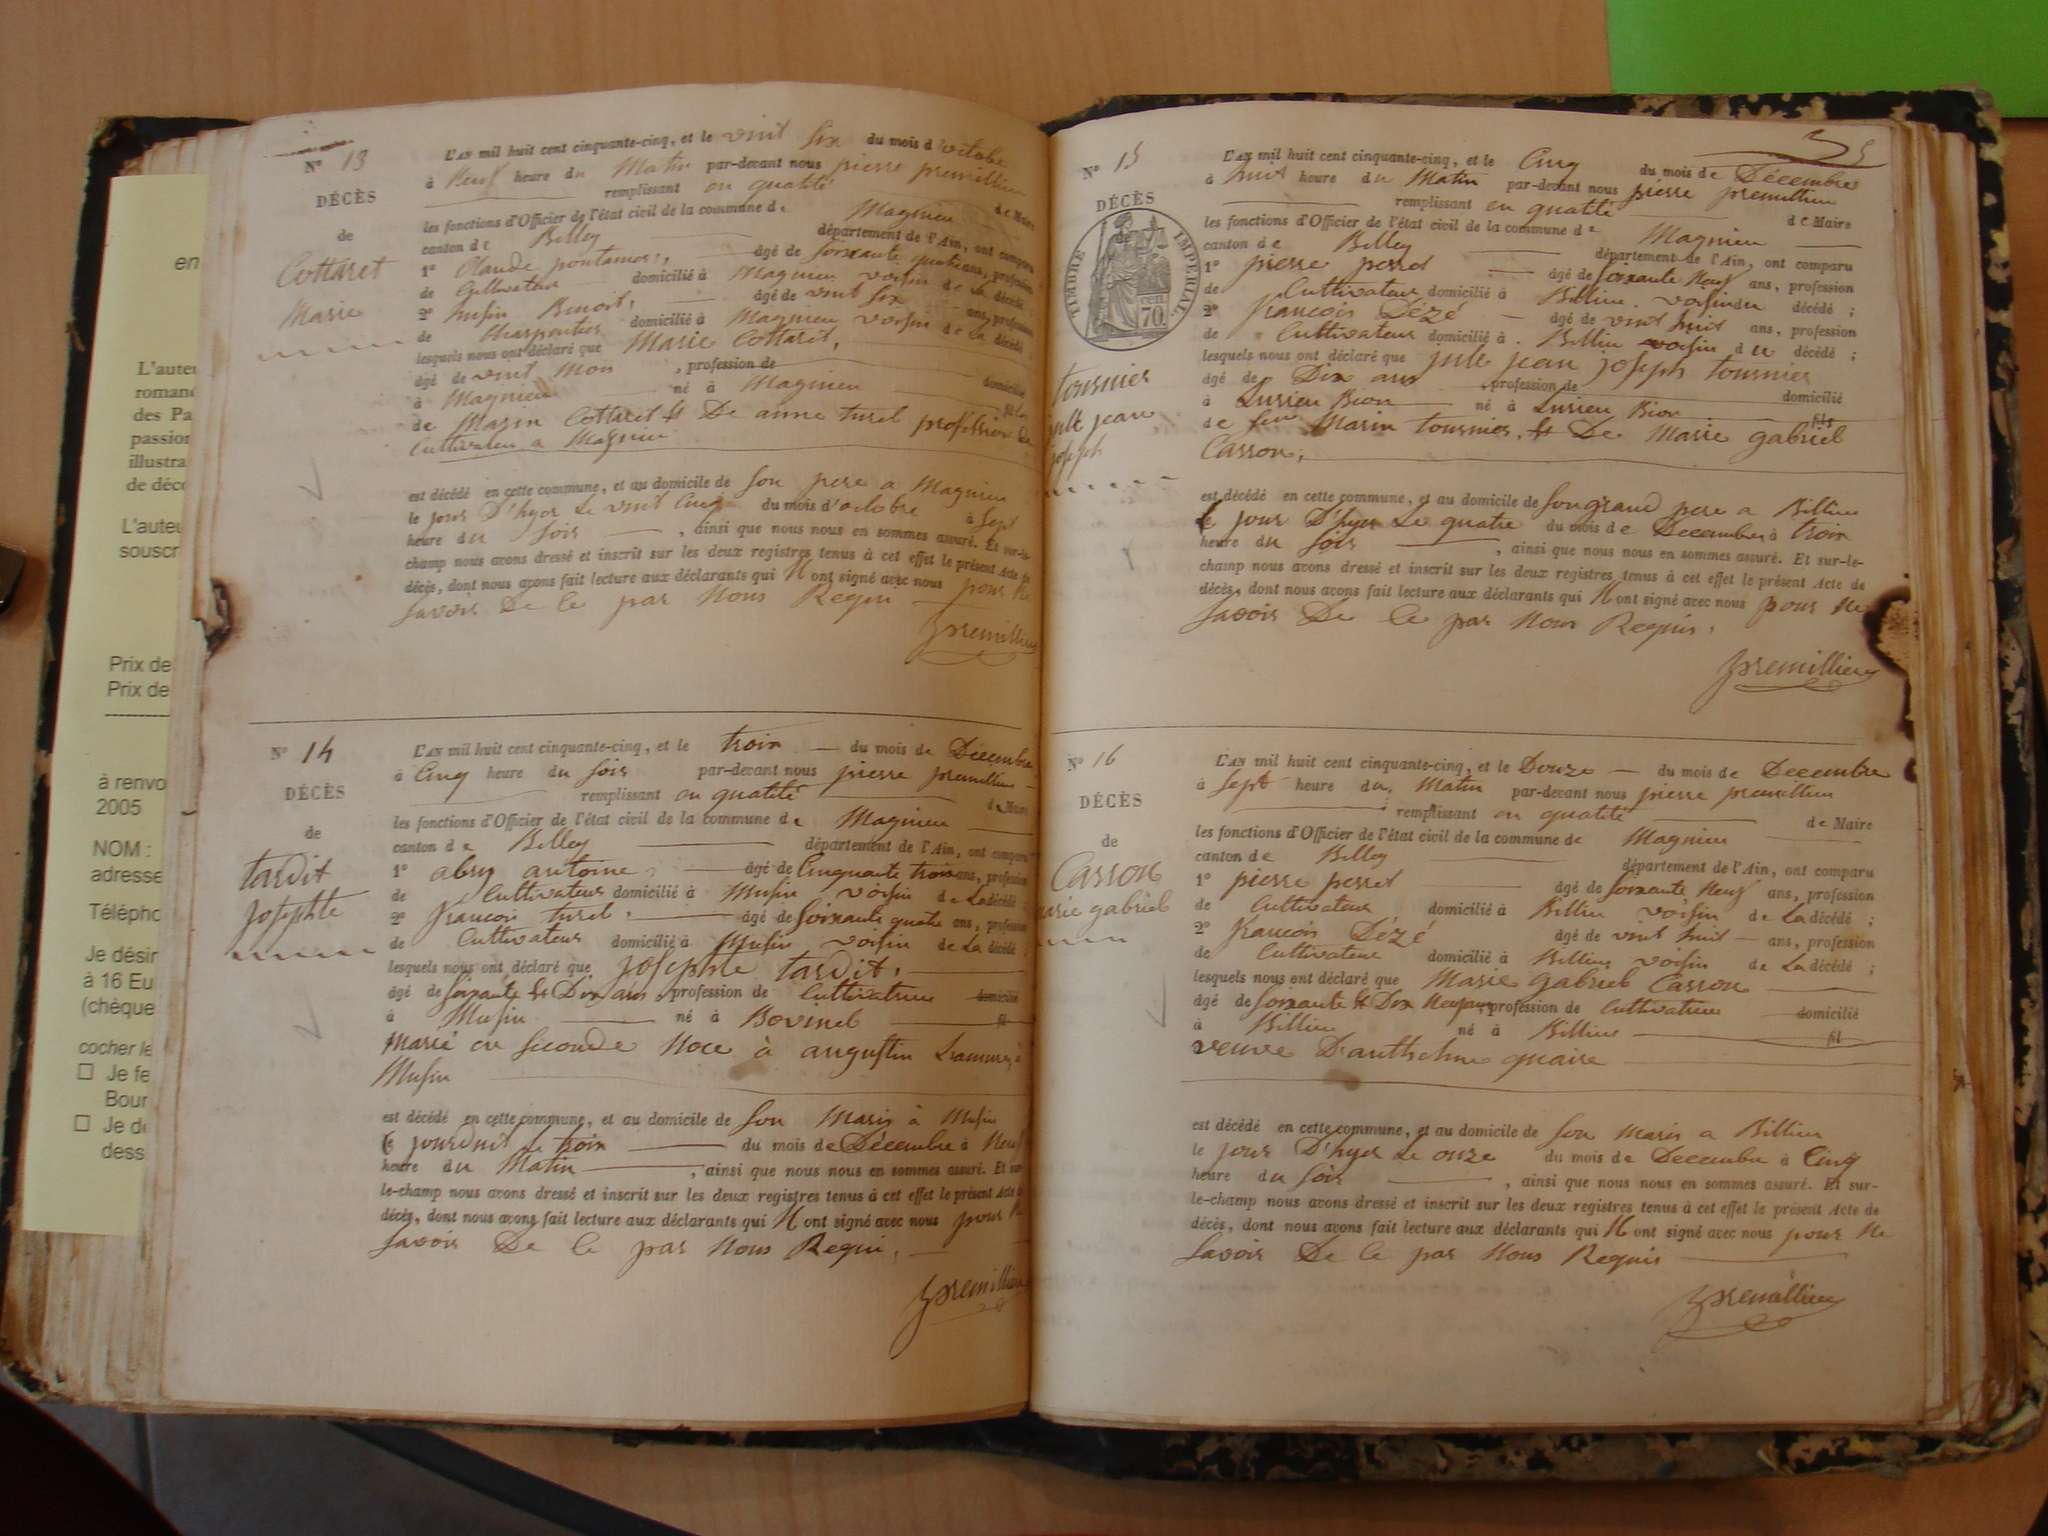 Nº 13
DÉCÈS
de
Cottaret
Marie
L'AN mil huit cent cinquante-cinq, et le vint six du mois d'octobre
à Neuf heure du Matin par-devant nous pierre premillieu
remplissant en qualité de Maire
les fonctions d'Officier de l'état civil de la commune de Magnieu
canton de Belley département de l'Ain, ont comparu
1º Claude pontamos, âgé de soixante quatre ans, profession
de Cultivateur domicilié à Magnieu voisin de La décédé
2º Benoit, âgé de vint six ans, profession
de Charpentier domicilié à Magnieu voisin de La décédé
lesquels nous ont déclaré que Marie Cottaret,
âgé de vint Mois, profession de domicilié
à Magnieu né à Magnieu fil
de Marin Cottaret et De anne turel profession de
Cultivateur a Magnieu
est décédé en cette commune, et au domicile de son pere a Magnieu
le jour D'hyer Le vint Cinq du mois d'octobre à sept
heure du soir, ainsi que nous nous en sommes assuré. Et sur-le-
champ nous avons dressé et inscrit sur les deux registres tenus à cet effet le présent Acte de
décès, dont nous avons fait lecture aux déclarants qui N ont signé avec nous pour Ne
savoir De Ce par Nous Requi
premillieu
Nº 14
DÉCÈS
de
tardit
josephte
L'AN mil huit cent cinquante-cinq, et le trois du mois de Décembre
à Cinq heure du soir par-devant nous pierre premillieu
remplissant en qualité de Maire
les fonctions d'Officier de l'état civil de la commune de Magnieu
canton de Belley département de l'Ain, ont comparu
1º abry antoine, âgé de Cinquante trois ans, profession
de Cultivateur domicilié à Musin voisin de La décédé
2º francois turel, âgé de soixante quatre ans, profession
de Cultivateur domicilié à Musin voisin de La décédé
lesquels nous ont déclaré que josephte tardit,
âgé de soixante et Dix ans, profession de Cultivatrice domicilié
à Musin né à fil
Marié en seconde Noce à augustin à
Musin
est décédé en cette commune, et au domicile de son Maris à Musin
le jourdhui Le trois du mois de Décembre à Neuf
heure du Matin, ainsi que nous nous en sommes assuré. Et sur-
le-champ nous avons dressé et inscrit sur les deux registres tenus à cet effet le présent Acte de
décès, dont nous avons fait lecture aux déclarants qui N ont signé avec nous pour Ne
savoir De Ce par Nous Requi,
premillieu
Nº 15
DÉCÈS
de
TIMBRE IMPERIAL
70 cen
tournier
jule jean
joseph
L'AN mil huit cent cinquante-cinq, et le Cinq du mois de Décembre
à huit heure du Matin par-devant nous pierre premillieu
remplissant en qualité de Maire
les fonctions d'Officier de l'état civil de la commune de Magnieu
canton de Belley département de l'Ain, ont comparu
1º pierre perret âgé de soixante Neuf ans, profession
de Cultivateur domicilié à Billieu. voisin du décédé ;
2º francois Dézé âgé de vint huit ans, profession
de Cultivateur domicilié à Billieu voisin du décédé ;
lesquels nous ont déclaré que jule jean joseph tournier
âgé de Dix ans, profession de domicilié
à Bion né à Bion fils
de feu Marin tournier, et De Marie gabriel
Casson,
est décédé en cette commune, et au domicile de son grand pere a Billieu
le jour D'hyer Le quatre du mois de Decembre à trois
heure du soir, ainsi que nous nous en sommes assuré. Et sur-le-
champ nous avons dressé et inscrit sur les deux registres tenus à cet effet le présent Acte de
décès, dont nous avons fait lecture aux déclarants qui N ont signé avec nous pour Ne
savoir De Ce par Nous Requis,
premillieu
Nº 16
DÉCÈS
de
Casson
marie gabriel
L'AN mil huit cent cinquante-cinq, et le Douze du mois de Decembre
à sept heure du Matin par-devant nous pierre premillieu
remplissant en qualité de Maire
les fonctions d'Officier de l'état civil de la commune de Magnieu
canton de Belley département de l'Ain, ont comparu
1º pierre perret âgé de soixante Neuf ans, profession
de Cultivateur domicilié à Billieu voisin de La décédé ;
2º francois Dézé âgé de vint huit ans, profession
de Cultivateur domicilié à Billieu voisin de La décédé ;
lesquels nous ont déclaré que Marie gabriel Casson
âgé de soixante et Dix Neuf ans, profession de Cultivatrice domicilié
à Billieu né à Billieu fil
veuve D'anthelme
est décédé en cette commune, et au domicile de son maris a Billieu
le jour D'hyer Le onze du mois de Decembre à Cinq
heure du soir, ainsi que nous nous en sommes assuré. Et sur-
le-champ nous avons dressé et inscrit sur les deux registres tenus à cet effet le présent Acte de
décès, dont nous avons fait lecture aux déclarants qui N ont signé avec nous pour Ne
savoir De Ce par Nous Requis
premillieu
en
L'auteu
roman
des Pa
passion
illustra
de déco
L'auteu
souscr
Prix de
Prix de
à renvo
2005
NOM :
adresse
Télépho
Je désir
à 16 Eu
(chèque
cocher le
Je fe
Bour
Je de
dess